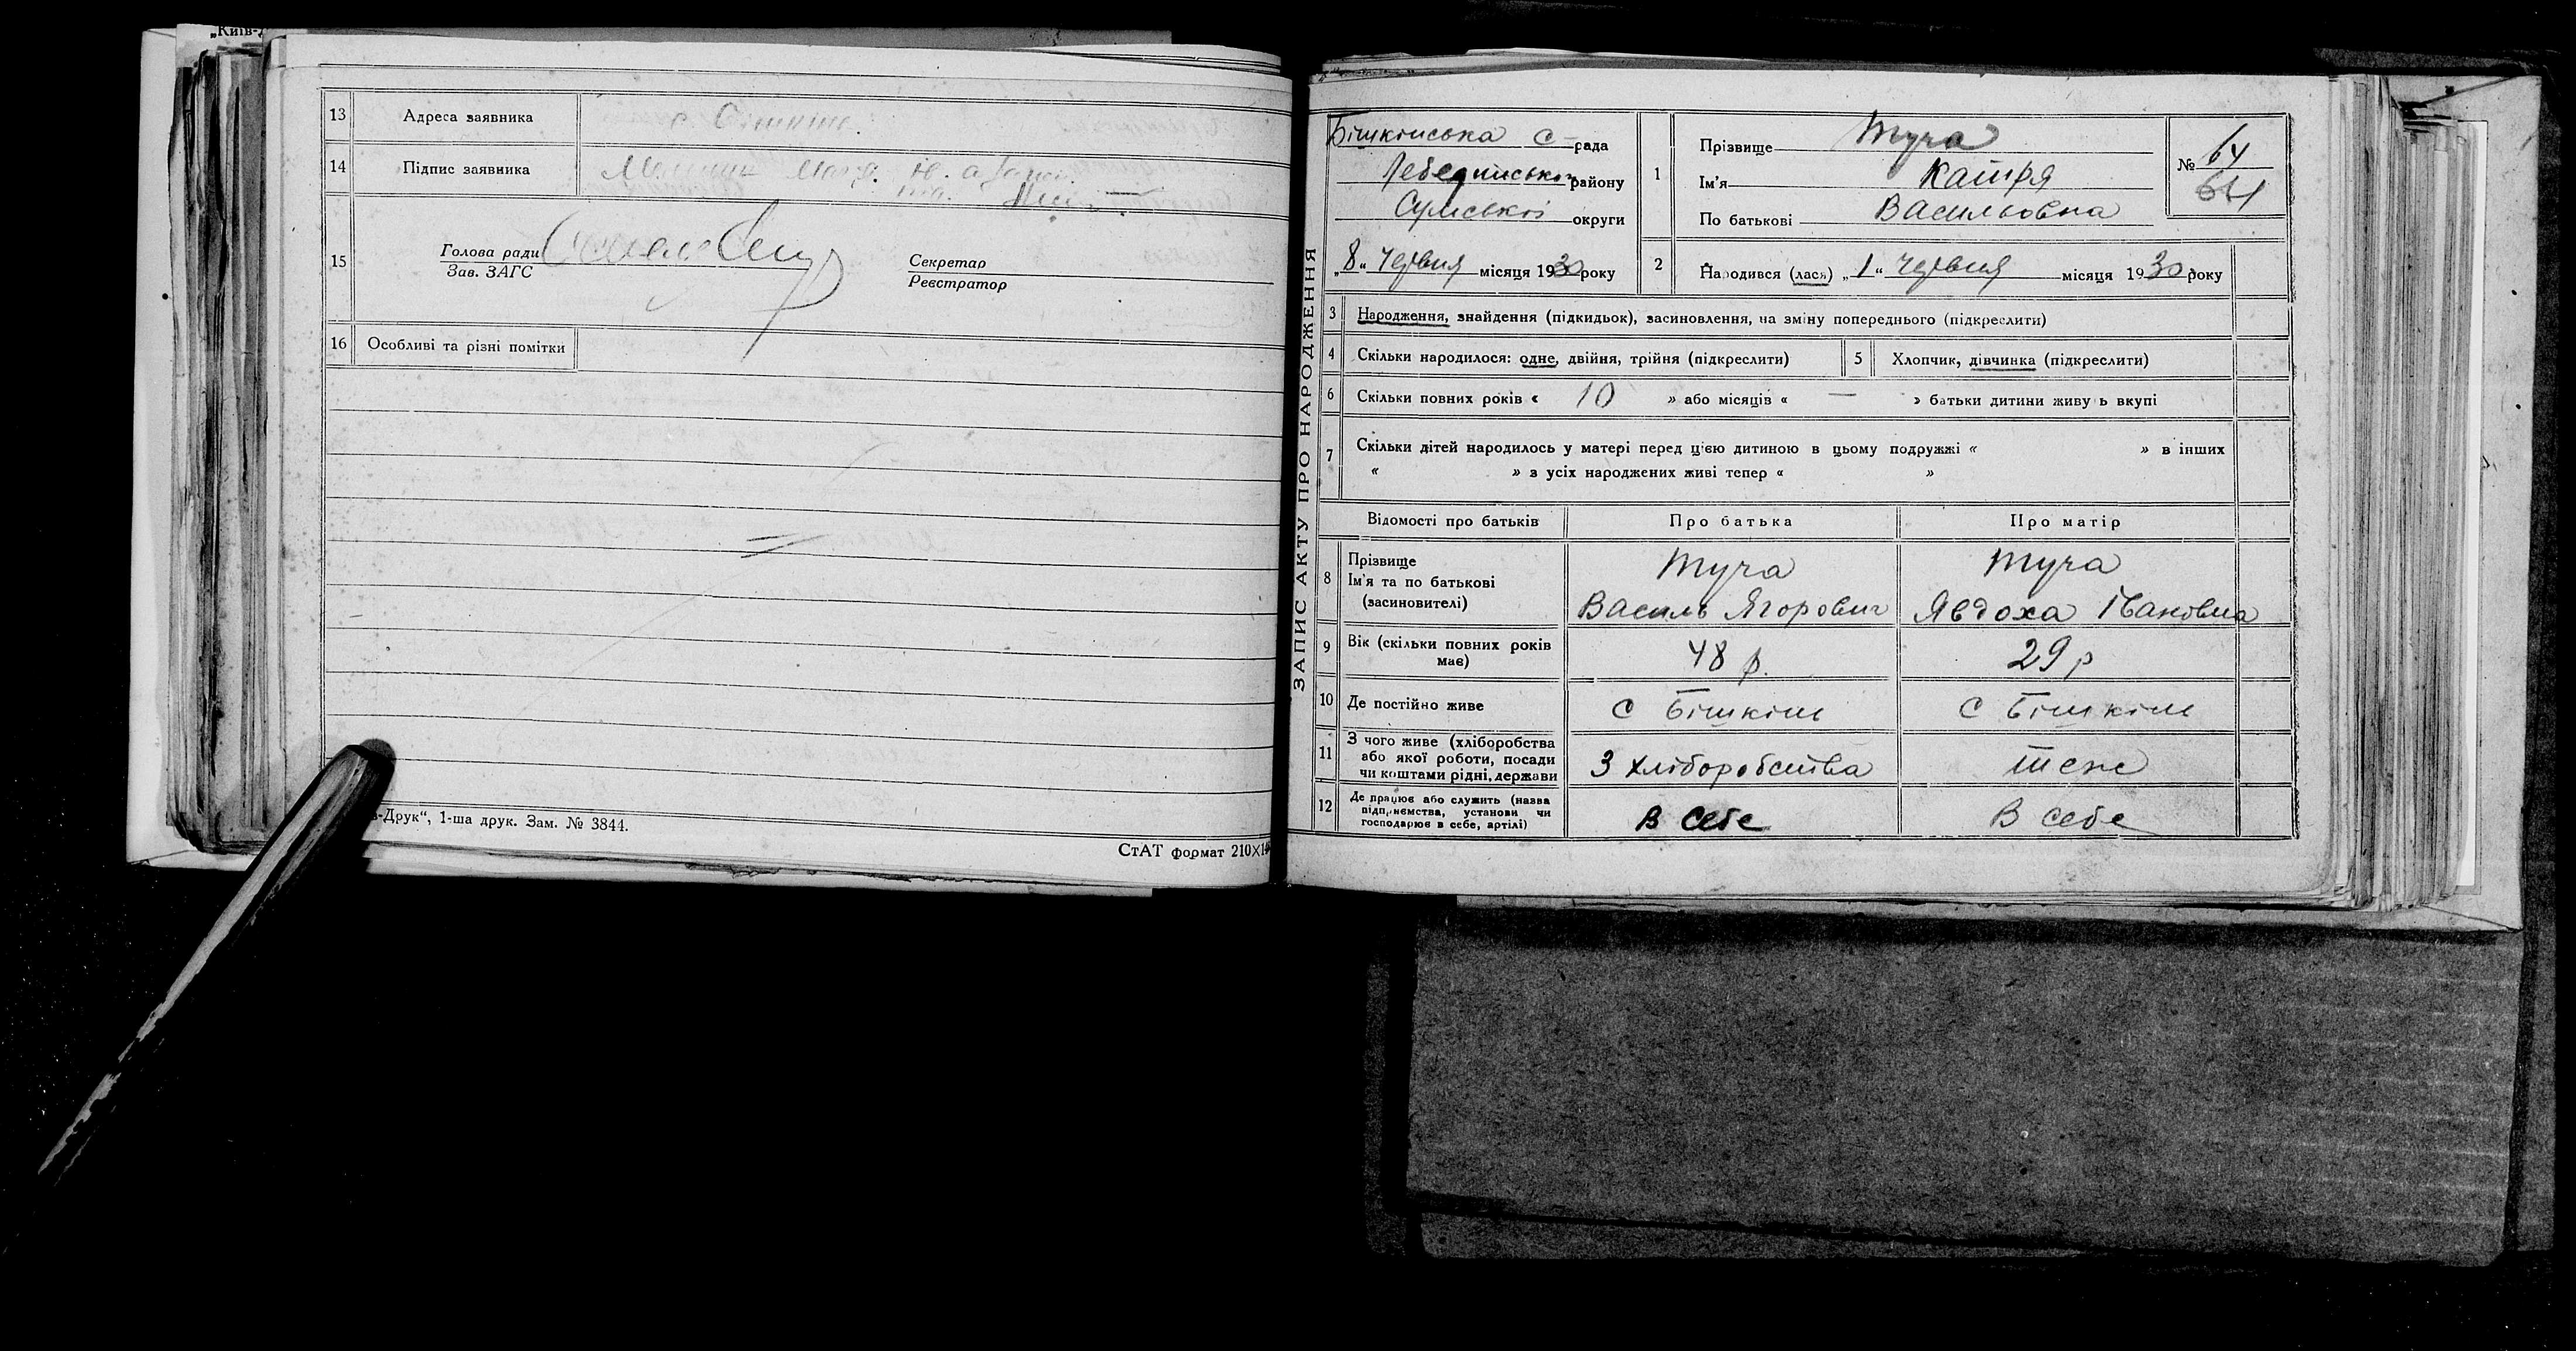 „Київ-
13 Адреса заявника с.
14 Підпис заявника
15 Голова ради Секретар
Зав. ЗАГС Реєстратор
16 Особливі та різні помітки
-Друк“, 1-ша друк. Зам. № 3844.
СтАТ формат 210×1
ЗАПИС АКТУ ПРО НАРОДЖЕННЯ
Бішкінська с рада
Лебединського району
Сумської округи
„8“ Червня місяця 1930 року
1 Прізвище Туча
Ім'я Катря
По батькові Васильовна
№ 64
64
2 Народився (лася) „1“ червня місяця 1930 року
3 Народження, знайдення (підкидьок), засиновлення, на зміну попереднього (підкреслити)
4 Скільки народилося: одне, двійня, трійня (підкреслити) 5 Хлопчик, дівчинка (підкреслити)
6 Скільки повних років « 10 » або місяців « — » батьки дитини живу ь вкупі
7 Скільки дітей народилось у матері перед цією дитиною в цьому подружжі « » в інших
« » з усіх народжених живі тепер « »
Відомості про батьків Про батька Про матір
8 Прізвище Туча Туча
Ім'я та по батькові
(засиновителі) Василь Ягорович Явдоха Івановна
9 Вік (скільки повних років
має) 48 р. 29 р
10 Де постійно живе с Бішкінь с Бішкінь
11 З чого живе (хліборобства
або якої роботи, посади
чи коштами рідні, держави З хліборобства теж
12 Де працює або служить (назва
підприємства, установи чи
господарює в себе, артілі) В себе В себе